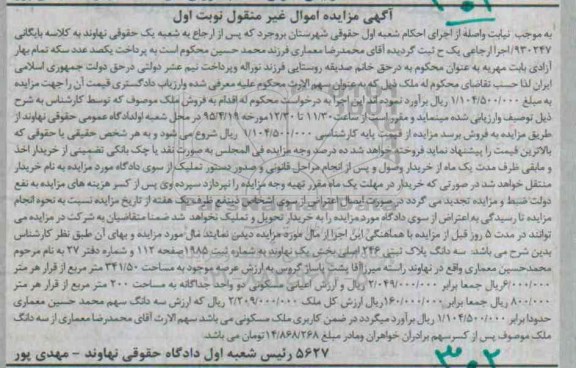 ۱۰۱
آگهی مزایده اموال غیر منقول نوبت اول
به موجب نیابت واصله از اجرای احکام شعبه اول حقوقی شهرستان بروجرد که پس از ارجاع به شعبه یک حقوقی نهاوند به کلاسه بایگانی
۹۳۰۲۴۷/اجرا ارجاعی یک ح ثبت گردیده آقای محمدرضا معماری فرزند محمد حسین محکوم است به پرداخت یکصد عدد سکه تمام بهار
آزادی بابت مهریه به عنوان محکوم به درحق خانم صدیقه روستایی فرزند نوراله وپرداخت نیم عشر دولتی درحق دولت جمهوری اسلامی
ایران لذا حسب تقاضای محکوم له ملک ذیل که به عنوان سهم الارث محکوم علیه معرفی شده وارزیاب دادگستری قیمت آن را جهت مزایده
به مبلغ ۱/۱۰۴/۵۰۰/۰۰۰ ریال برآورد نموده اند این اجرا به درخواست محکوم له اقدام به فروش ملک موصوف که توسط کارشناس به شرح
ذیل توصیف وارزیابی شده مینماید و مقرر است از ساعت ۱۱/۳۰ تا ۱۲/۳۰ مورخه ۹۵/۴/۱۹ در محل شعبه اول دادگاه عمومی حقوقی نهاوند از
طریق مزایده به فروش برسد مزایده از قیمت پایه کارشناسی ۱/۱۰۴/۵۰۰/۰۰۰ ریال شروع می شود و به هر شخص حقیقی یا حقوقی که
بالاترین قیمت را پیشنهاد نماید فروخته خواهد شد ده درصد وجه مزایده فی المجلس به صورت نقد یا چک بانکی تضمینی از خریدار اخذ
و مابقی ظرف مدت یک ماه از خریدار وصول و پس از انجام مراحل قانونی و صدور دستور تملیک از سوی دادگاه مورد مزایده به نام خریدار
منتقل خواهد شد در صورتی که خریدار در مهلت یک ماه مقرر تهیه وجه مزایده را نپردازد سپرده وی پس از کسر هزینه های مزایده به نفع
دولت ضبط و مزایده تجدید می گردد در صورت ایصال اعتراض از سوی اشخاص ذینفع ظرف یک هفته از تاریخ مزایده نسبت به نحوه انجام
مزایده تا رسیدگی به اعتراض از سوی دادگاه مورد مزایده را به خریدار تحویل و تملیک نخواهد شد ضمنا متقاضیان به شرکت در مزایده می
توانند در مدت ۵ روز قبل از مزایده با هماهنگی این اجرا از مال مورد مزایده دیدن نمایند مال مورد مزایده و بهای آن طبق نظر کارشناس
بدین شرح می باشد: سه دانگ پلاک ثبتی ۲۴۶ اصلی بخش یک نهاوند به شماره ثبت ۱۹۸۵ صفحه ۱۱۲ و شماره دفتر ۲۷ به نام مرحوم
محمدحسین معماری واقع در نهاوند راسته میرزا آقا پشت پاساژ گروس به ارزش عرصه موجود به مساحت ۳۴۱/۵۰ متر مربع از قرار هر متر
۶/۰۰۰/۰۰۰ ریال جمعا برابر ۲/۰۴۹/۰۰۰/۰۰۰ ریال و ارزش اعیانی مسکونی دو واحد جداگانه به مساحت ۲۰۰ متر مربع از قرار هر متر
۸۰۰/۰۰۰ ریال جمعا برابر ۱۶۰/۰۰۰/۰۰۰ ریال ارزش کل ملک ۲/۲۰۹/۰۰۰/۰۰۰ ریال که ارزش سه دانگ سهم محمد حسین معماری
حدودا برابر ۱/۱۰۴/۵۰۰/۰۰۰ ریال برآورد میگردد در ضمن کاربری ملک مسکونی می باشد سهم الارث آقای محمدرضا معماری از سه دانگ
ملک موصوف پس از کسرسهم برادران خواهران ومادر مبلغ ۱۴/۸۶۸/۲۶۸ تومان می باشد.
۵۶۲۷ رئیس شعبه اول دادگاه حقوقی نهاوند - مهدی پور
۳۰۲